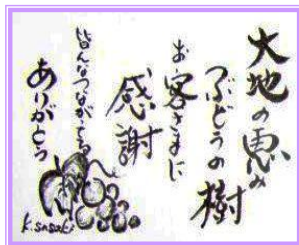 大地の恵み
ぶどうの樹
お客さまに
感謝
皆んなつながってる
ありがとう
K.Sasaki